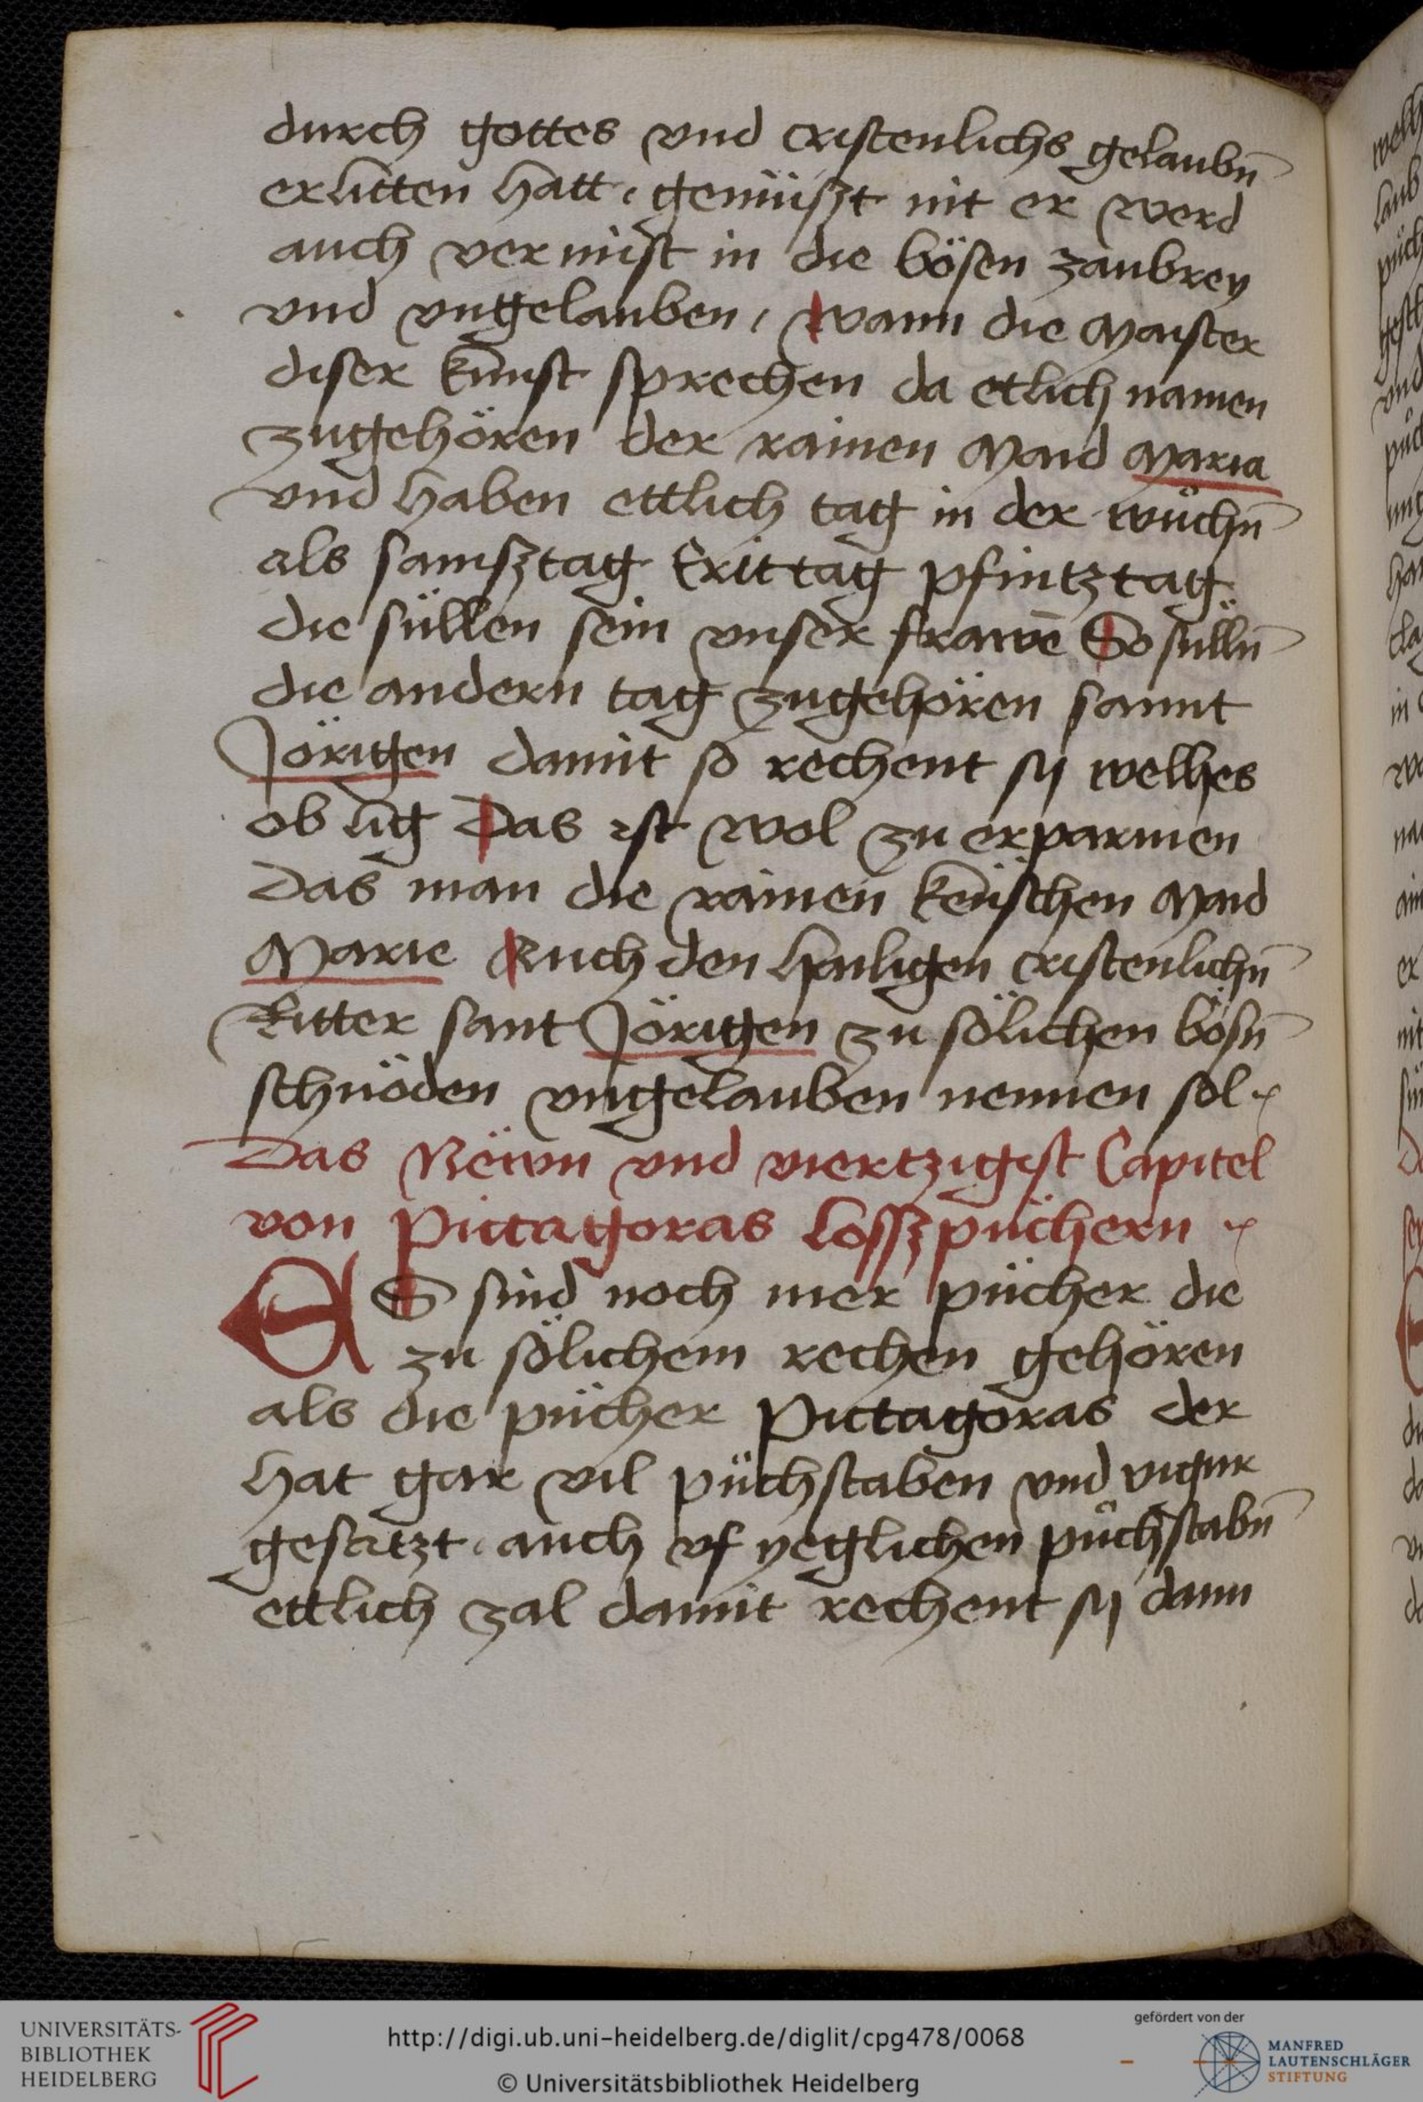 durch gottes vnd cristenlichs gelaubn̄
erlitten hatt, gemüszt nit er werd
auch vermist in die bösen zaubrey
vnd vngelauben, wann die Maister
diser kunst sprechen da etlich namen
zugehören der rainen Maid Maria
vnd haben ettlich tag in der wůchn̄
als samsztag Erittag pfintztag
die süllen sein vnser frawē So sülln̄
die andern tag zugehören sannt
Jörigen damit so rechent sy welhes
ob lig Das ist wol zu erparmen
Das man die rainen keüschen Maid
Marie Auch den hailigen cristenlichn̄
Ritter sant Jörigen zu sölichen bösn̄
schnöden vngelauben nennen sol
Das Newn vnd viertzigist Capitel
von Pictagoras losszpüchern
ES sind noch mer pücher die
zu sölichem rechen gehören
als die pücher Pictagoras der
hat gar vil püchstaben vnd vigur
gesatzt, auch vf yeglichen půchstabn̄
ettlich zal damit rechent sy dann
UNIVERSITÄTS-
BIBLIOTHEK
HEIDELBERG
http://digi.ub.uni-heidelberg.de/diglit/cpg478/0068
© Universitätsbibliothek Heidelberg
gefördert von der
MANFRED
LAUTENSCHLÄGER
STIFTUNG